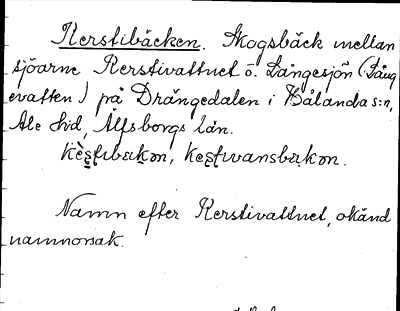 Kerstibäcken. Skogsbäck mellan
sjöarne Kerstivattnet o. Långesjön (Lång
evatten) på Drängedalen i Hålanda s:n,
Ale hd, Älfsborgs län.
Namn efter Kerstivattnet, okänd
namnorsak.